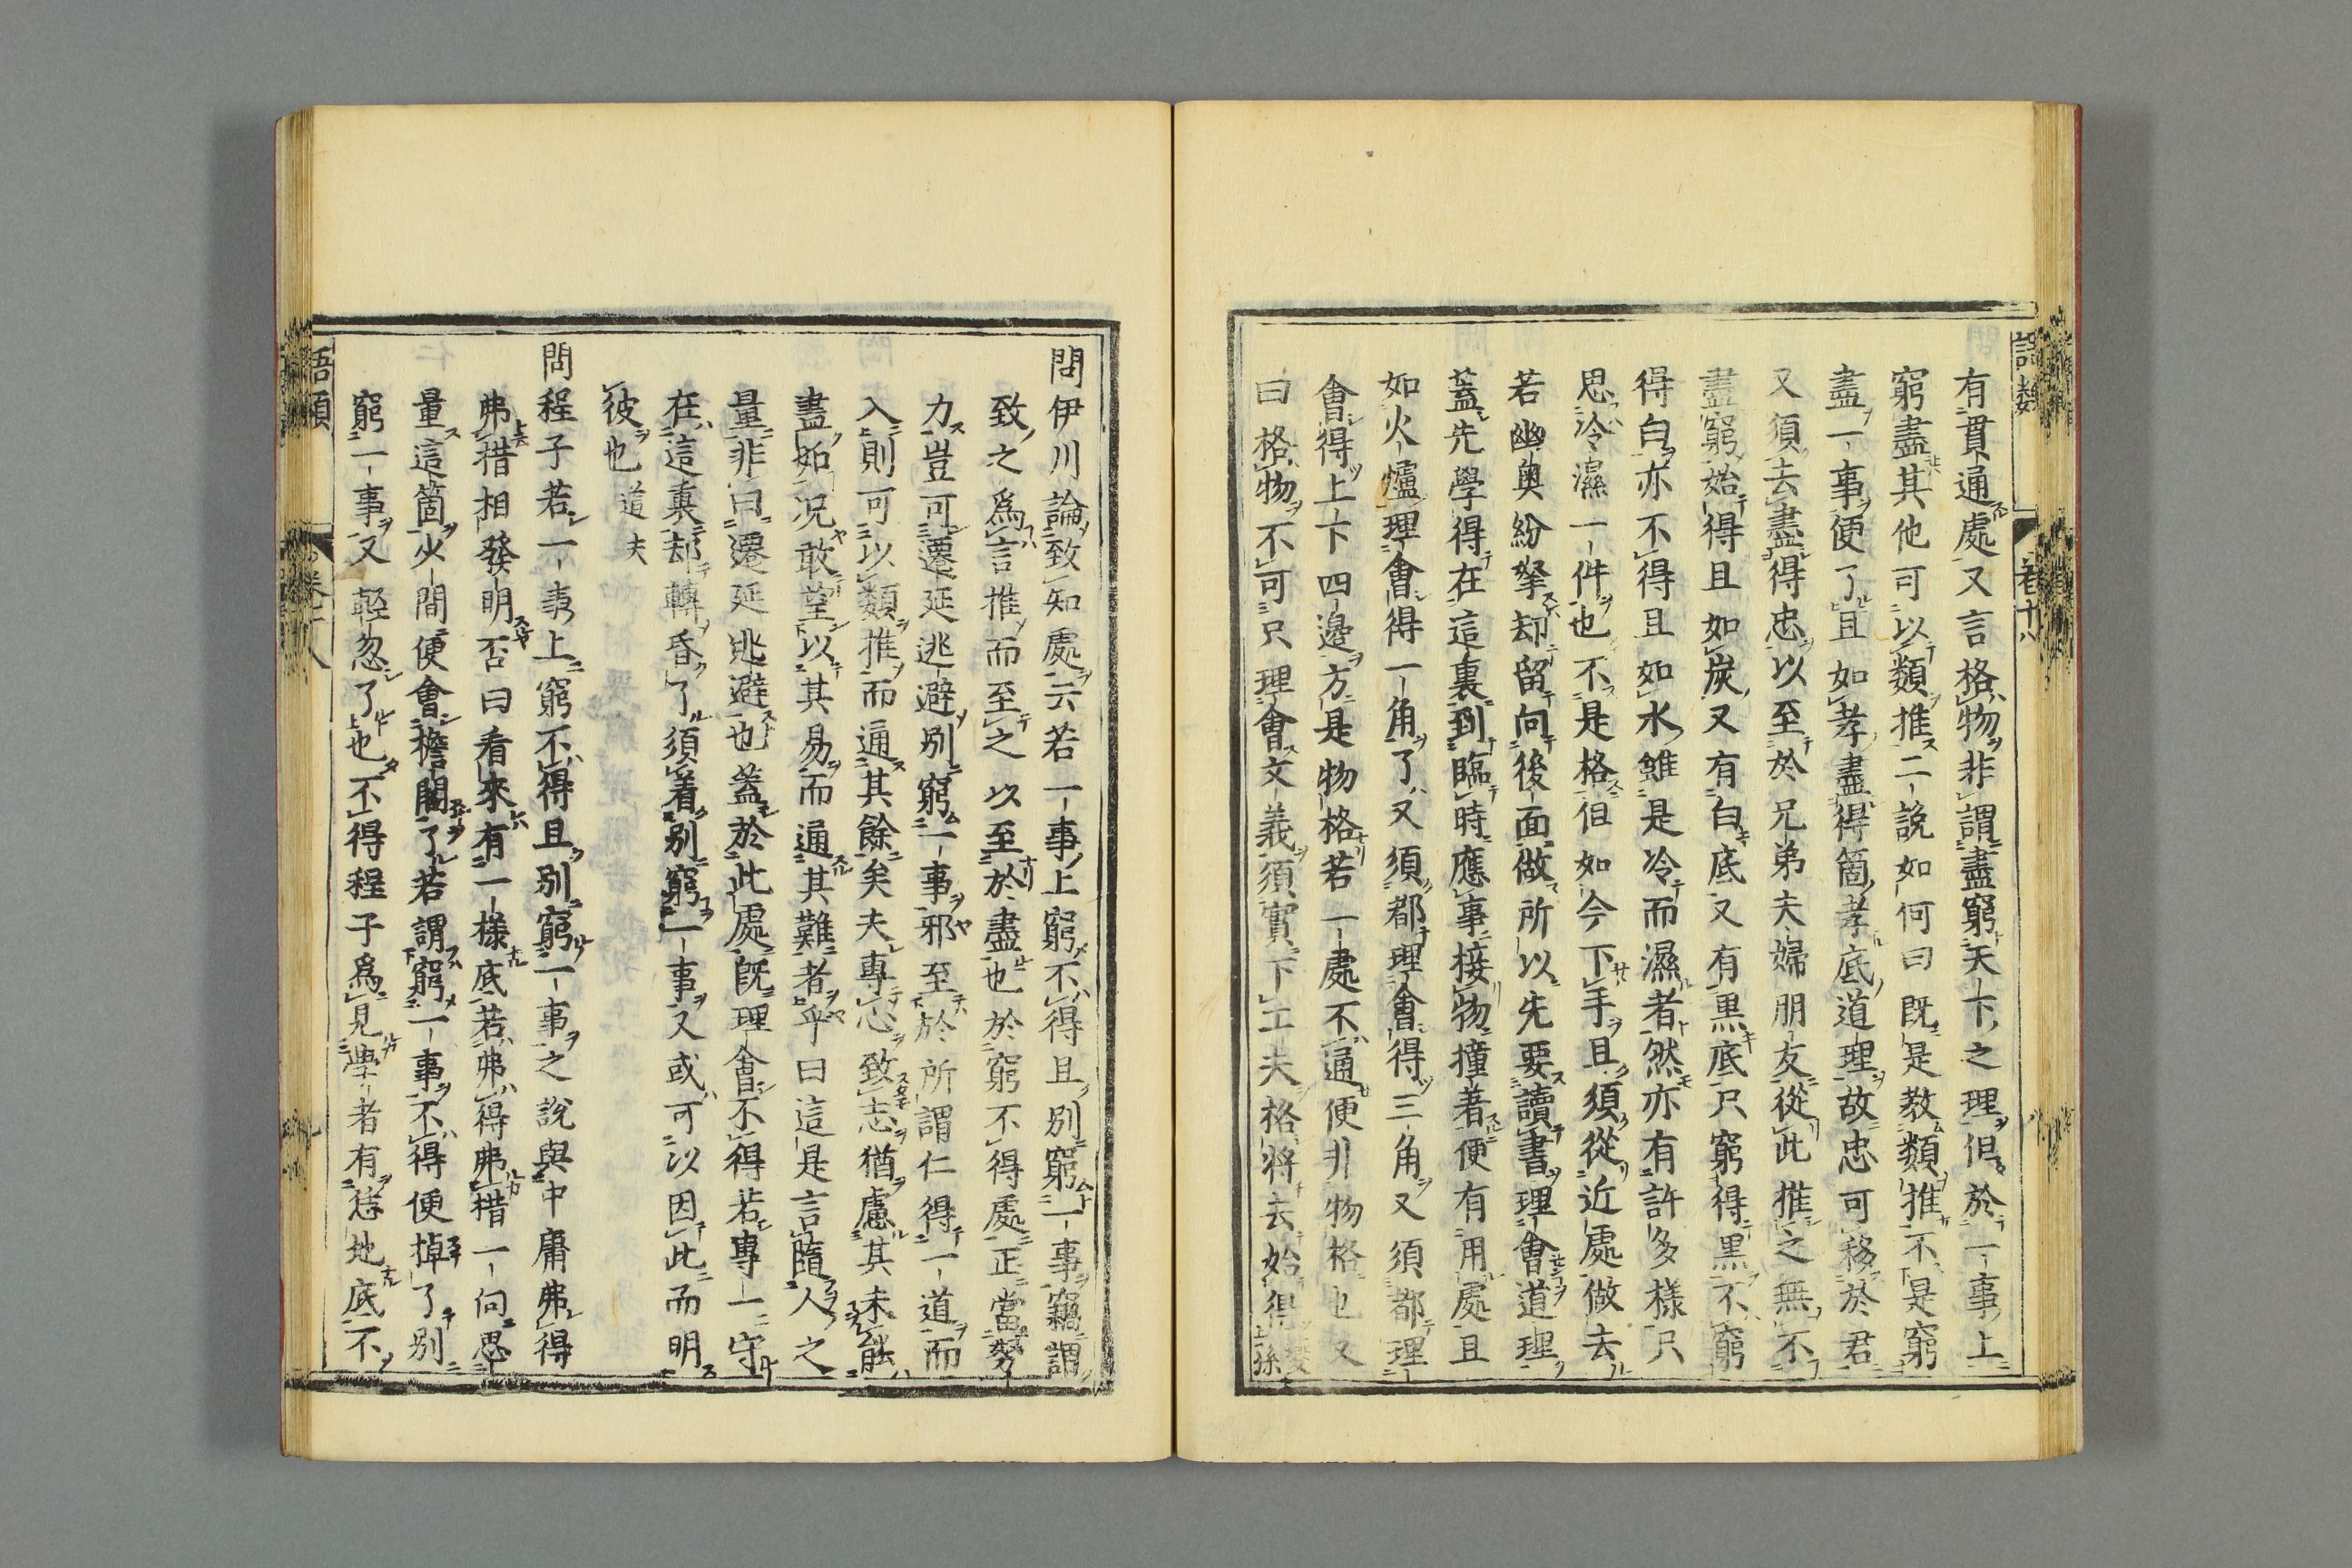 語類 卷十八
有貫通處又言格物非謂盡窮天下之理但於一事上
窮盡其他可以類推二說如何曰既是教類推不是窮
盡一事便了且如孝盡得箇孝底道理故忠可移於君
又須去盡得忠以至於兄弟夫婦朋友從此推之無不
盡窮始得且如炭又有白底又有黑底只窮得黑不窮
得白亦不得且如水雖是冷而濕者然亦有許多樣只
思冷濕一件也不是格但如今下手且須從近處做去
若幽奧紛拏却留向後面做所以先要讀書理會道理
蓋先學得在這裏到臨時應事接物撞著便有用處且
如火爐理會得一角了又須都理會得三角又須都理
會得上下四邊方是物格若一處不通便非物格也又
曰格物不可只理會文義須實下工夫格將去始得
問伊川論致知處云若一事上窮不得且別窮一事竊謂
致之為言推而至之以至於盡也於窮不得處正當努
力豈可遷延逃避別窮一事邪至於所謂仁得一道而
入則可以類推而通其餘矣夫專心致志猶慮其未能
盡如況敢望以其易而通其難者乎曰這是言隨人之
量非曰遷延逃避也蓋於此處既理會不得若專一守
在這裏却轉昏了須着別窮一事又或可以因此而明
彼也 道夫
問程子若一事上窮不得且別窮一事之說與中庸弗得
弗措相發明否曰看來有一樣底若弗得弗措一向思
量這箇少間便會擔閣了若謂窮一事不得便掉了別
窮一事又輕忽了也不得程子為見學者有恁地底不
語類 卷十八